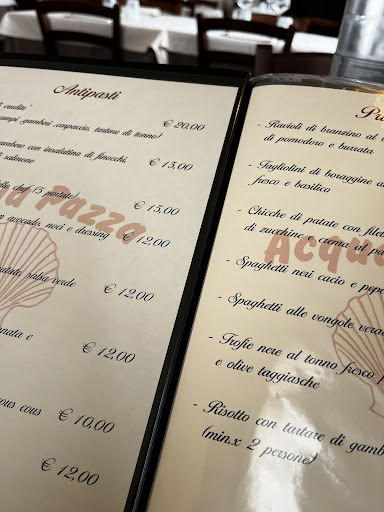 Antipasti
crudité
scampi, gamberi, carpaccio, tartare di tonno) € 20,00
gambero con insalatina di finocchi, € 15,00
salmone
chef (5 portate) € 15,00
Pazza
avocado, noci e dressing € 12,00
salsa verde € 12,00
e € 12,00
cous cous € 10,00
€ 12,00
- Ravioli di branzino al
di pomodoro e burrata
- Tagliolini di boraggine
fresco e basilico
- Chicche di patate con
di zucchine e crema al
Acqua
- Spaghetti neri cacio e pepe
- Spaghetti alle vongole
- Trofie nere al tonno fresco
e olive taggiasche
- Risotto con tartare di
(min.x 2 persone)